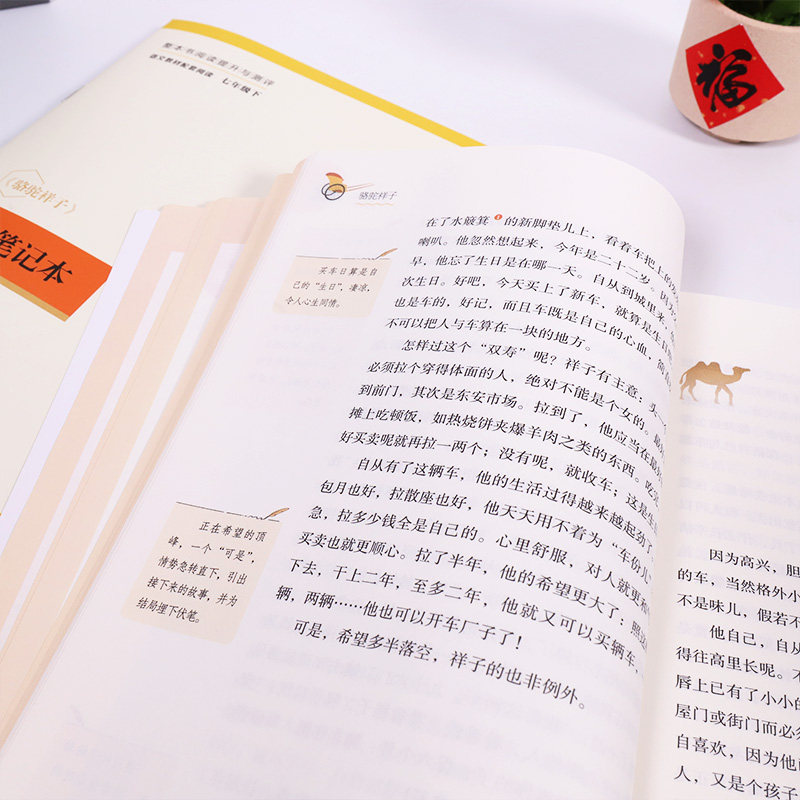 整本书阅读提升与测评
语文教材配套阅读 七年级下
《骆驼祥子》
笔记本
福
骆驼祥子
在了水簸箕1的新脚垫儿上，看着车把上的
喇叭。他忽然想起来，今年是二十二岁。因为
早，他忘了生日是在哪一天。自从到城里来，
次生日。好吧，今天买上了新车，就算是生日
也是车的，好记，而且车既是自己的心血，简
不可以把人与车算在一块的地方。
怎样过这个“双寿”呢？祥子有主意：头一
必须拉个穿得体面的人，绝对不能是个女的。最
到前门，其次是东安市场。拉到了，他应当在最
摊上吃顿饭，如热烧饼夹爆羊肉之类的东西。吃完
好买卖呢就再拉一两个；没有呢，就收车；这是生
自从有了这辆车，他的生活过得越来越起劲了
包月也好，拉散座也好，他天天用不着为“车份儿”
急，拉多少钱全是自己的。心里舒服，对人就更和
买卖也就更顺心。拉了半年，他的希望更大了：照这
下去，干上二年，至多二年，他就又可以买辆车，
辆，两辆……他也可以开车厂子了！
可是，希望多半落空，祥子的也非例外。
买车日算是自
己的“生日”，凄凉，
令人心生同情。
正在希望的顶
峰，一个“可是”，
情势急转直下，引出
接下来的故事，并为
结局埋下伏笔。
因为高兴，胆
的车，当然格外小
不是味儿，假若不
他自己，自从
得往高里长呢。不
唇上已有了小小的
屋门或街门而必须
自喜欢，因为他
人，又是个孩子